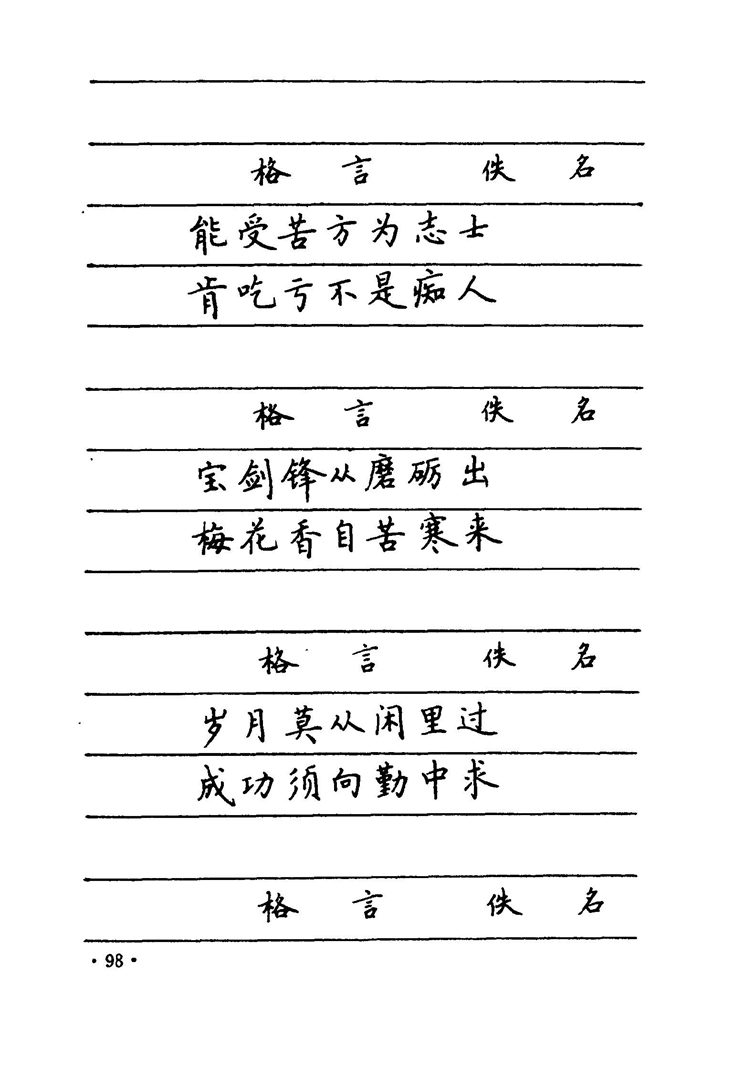 格言 佚名
能受苦方为志士
肯吃亏不是痴人
格言 佚名
宝剑锋从磨砺出
梅花香自苦寒来
格言 佚名
岁月莫从闲里过
成功须向勤中求
格言 佚名
·98·